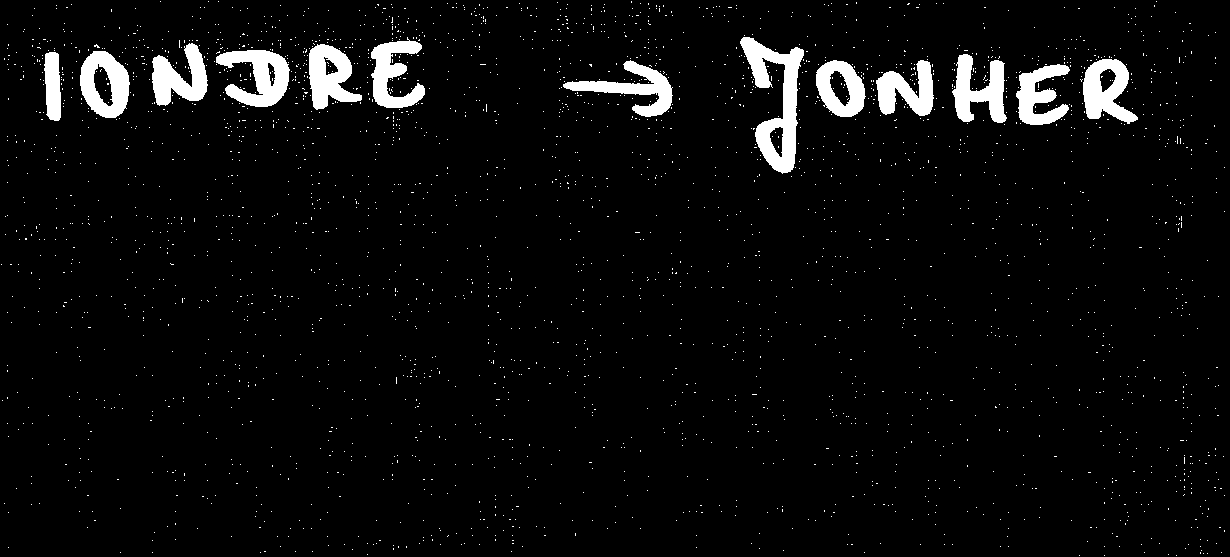 IONDRE → JONHER